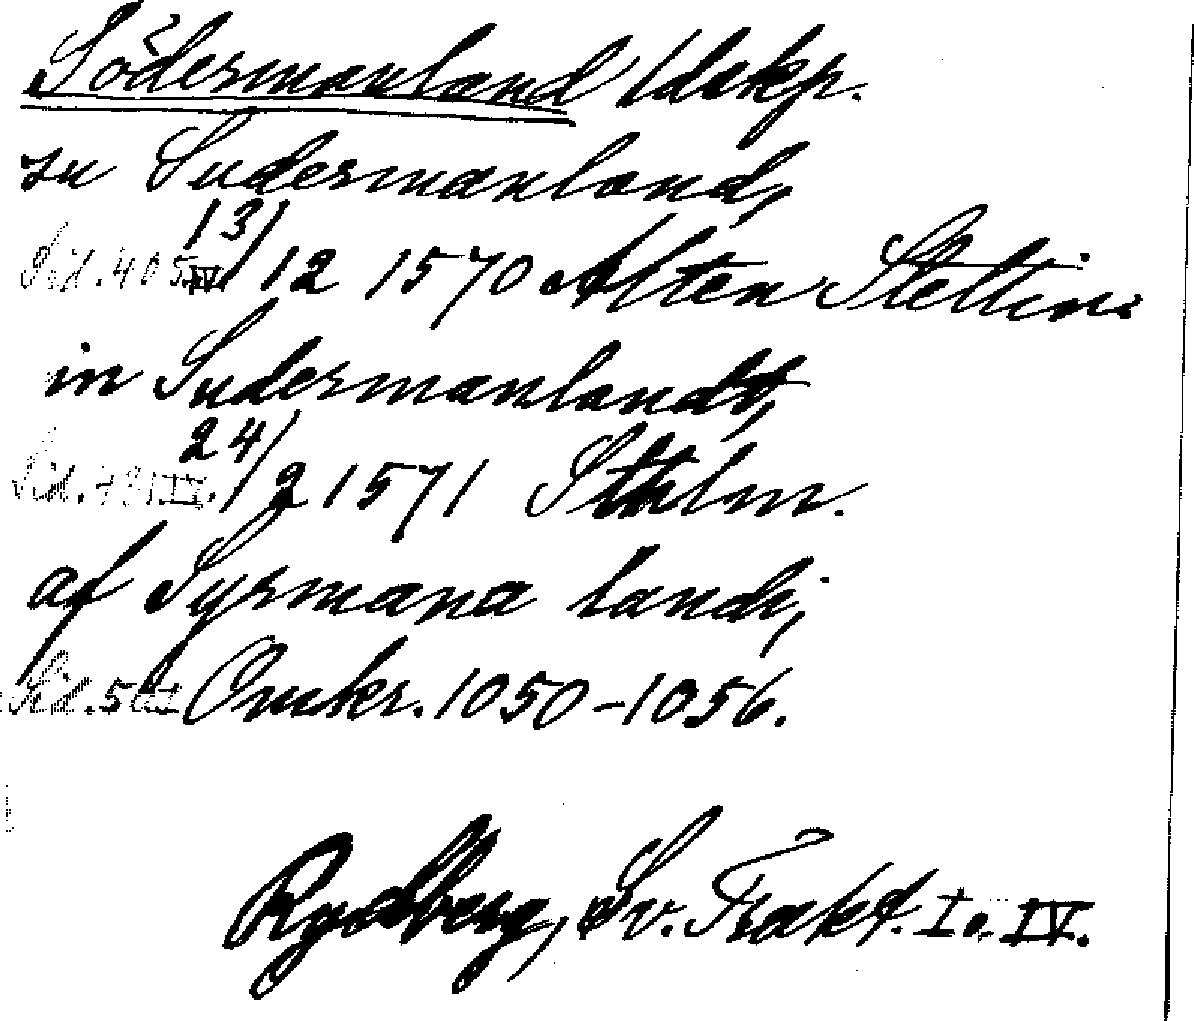 Södermanland ldskp.
zu Sudermanland,
Sid. 405 IV 13/12 1570 Alten Stettin.
in Sudermanlandt,
Sid. IV. 24/2 1571 Sthlm.
af Syrmana landi,
Sid. Omkr. 1050-1056.
Rydberg, Sv. Trakt. I o. IV.